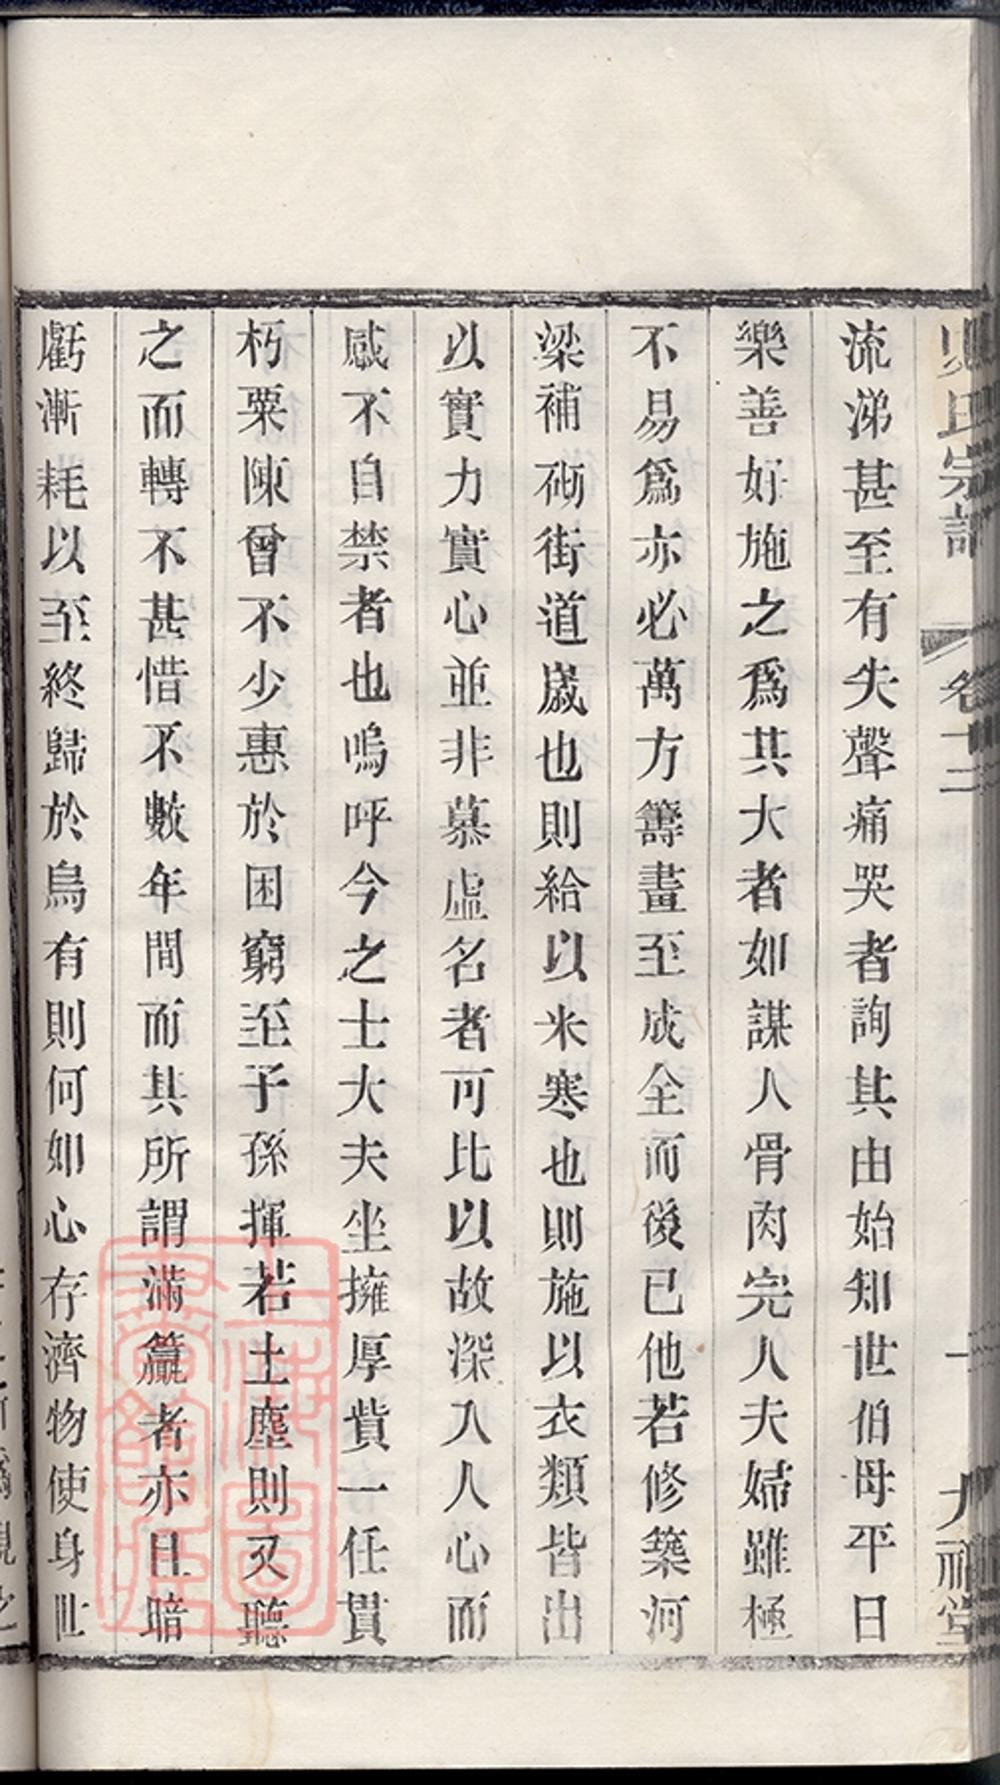 流涕甚至有失聲痛哭者詢其由始知世伯母平日
樂善好施之爲其大者如謀人骨肉完人夫婦雖極
不易爲亦必萬方籌畫至成全而後已他若修築河
梁補砌街道歲也則給以米寒也則施以衣類皆出
以實力實心並非慕虛名者可比以故深入人心而
感不自禁者也嗚呼今之士大夫坐擁厚貲一任貫
朽粟陳曾不少惠於困窮至子孫揮若土塵則又聽
之而轉不甚惜不數年間而其所謂滿籯者亦且暗
虧漸耗以至終歸於烏有則何如心存濟物使身世
上海圖書館藏